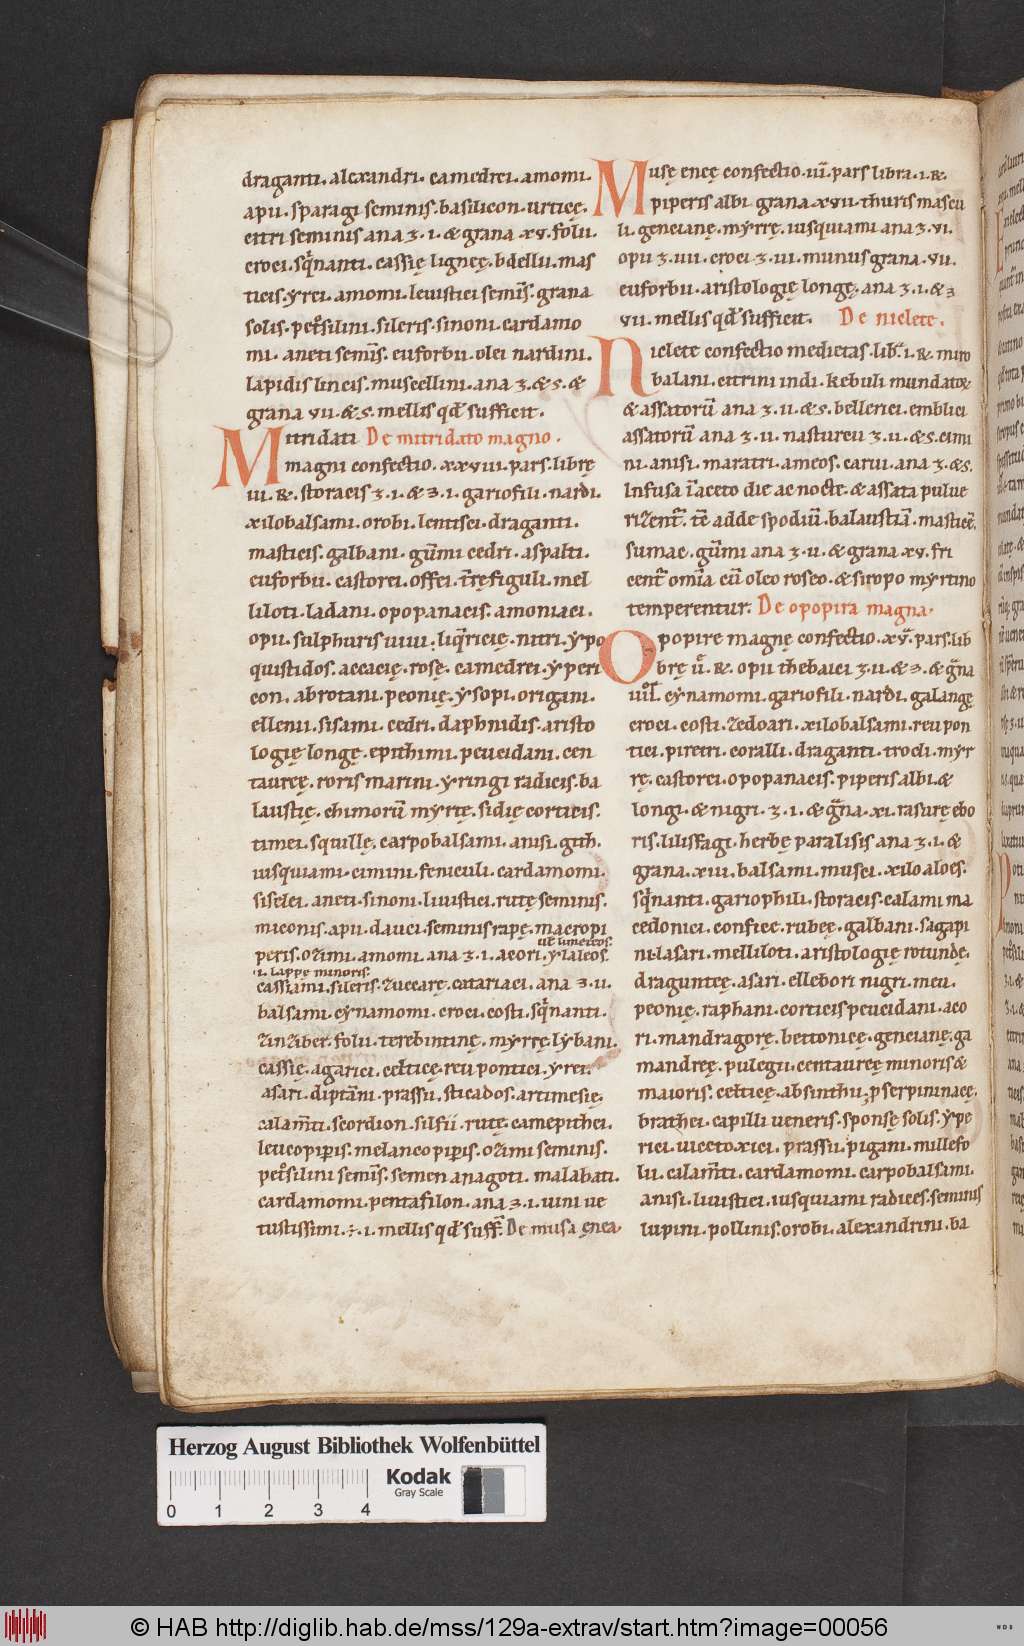 draganti. alexandri. camedrei. amomi.
apii. sparagi seminis. basilicon. urticę.
citri seminis ana ʒ. i. & grana xv. folii.
croci. sq̅nanti. cassię lignee. bdellii. mas
ticis. yrei. amomi. leuistici sem̅is. grana
solis. pet̅silini. sileris. sinoni. cardamo
mi. aneti sem̅is. euforbii. olei nardini.
lapidis lincis. muscellini. ana ʒ. & s. &
grana vii. & s. mellis qd̅ sufficit.
Mitridati De mitridato magno.
magni confectio. xxviii. pars. librę
iii. R̵. storacis ʒ. i. & ℈. i. gariofili. nardi.
xilobalsami. orobi. lentisci. draganti.
masticis. galbani. gu̅mi cedri. aspalti.
euforbii. castorei. offei. t̅rę figuli. mel
liloti. ladani. opopanacis. amoniaci.
opii. sulphuris uiui. liq̅ricię. nitri. ypo
quistidos. accacię. rosę. camedrei. yperi
con. abrotani. peonię. ysopi. origani.
ellenii. sisami. cedri. daphnidis. aristo
logię longę. epithimi. peucidani. cen
taureę. roris marini. yringi radicis. ba
laustię. chimoru̅ myrtę. sidię corticis.
timei. squillę. carpobalsami. anisi. gith.
iusquiami. cimini. feniculi. cardamomi.
siselei. aneti. sinoni. liuistici. rutę seminis.
miconis. apii. dauci. seminis rapę. macropi
ul̅ simeicos.
peris. ozimi. amomi. ana ʒ. i. acori. ylaleos.
.i. lappę minoris.
cassiami. sileris. zuccarę. catariaci. ana ʒ. ii.
balsami. cynamomi. croci. costi. sq̅nanti.
zinziber. folii. terebintinę. myrrę. lybani.
cassię. agarici. celticę. reu pontici. yrei.
asari. dipta̅ni. prassii. sticados. artimesię.
calam̅ti. scordion. silfii. rutę. camepithei.
leucopip̅is. melancopip̅is. ozimi seminis.
pet̅silini sem̅is. semen anagoti. malabati.
cardamomi. pentafilon. ana ʒ. i. uini ue
tustissimi. ÷. i. mellis qd̅ suff̅. De musa enea.
Musę eneę confectio. iii̅. pars libra. i. R̵.
piperis albi grana. xvii. thuris mascu
li. gencianę. myrrę. iusquiami ana ʒ. vi.
opii ʒ. iiii. croci ʒ. iii. munus grana. vii.
euforbii. aristologię longę. ana ʒ. i. & ℈
vii. mellis qd̅ sufficit. De nielete.
Nielete confectio medietas. lib̅. i. R̵. miro
balani. citrini indi. kebuli mundatoꝝ
& assatoru̅ ana ʒ. ii. & s. bellerici. emblici
assatoru̅ ana ʒ. ii. nasturcii ʒ. ii. & s. cimi
ni. anisi. maratri. ameos. carui. ana ʒ. & s.
Infusa i̅ aceto die ac nocte. & assata pulue
rizent̅. te̅ adde spodiu̅. balaustia̅. mastice̅.
sumac. gu̅mi ana ʒ. ii. & grana xv. fri
cent̅ om̅ia cu̅ oleo roseo. & siropo myrtino
temperentur. De opopira magna.
Opopire magnę confectio. xv̅. pars. lib
brę u̅. R̵. opii thebaici ʒ. ii. & ℈. & g̅na
cynamomi. gariofili. nardi. galangę
croci. costi. zedoari. xilobalsami. reu pon
tici. piretri. coralli. draganti. troci. myr
rę. castorei. opopanacis. piperis albi. &
longi. & nigri. ʒ. i. & g̅na. xi. rasurę ebo
ris. lilisfagi. herbę paralisis ana ʒ. i. &
grana. xiii. balsami. musci. xilo aloes.
sq̅nanti. gariophili. storacis. calami ma
cedonici. confiec. rubeę. galbani. sagapi
ni. lasari. melliloti. aristologię rotundę.
draguntee. asari. ellebori nigri. meu.
peonię. raphani. corticis peucidani. aco
ri. mandragorę. bettonicę. gencianę. ga
mandreę. pulegii. centaureę minoris &
maioris. celticę. absinthii. ꝑserpininacę.
brathei. capilli ueneris. sponsę solis. ype
rici. uicetoxici. prassii. pigani. millefo
lii. calam̅ti. cardamomi. carpobalsami.
anisi. liuistici. iusquiami radices. seminis
lupini. pollinis. orobi. alexandrini. ba
Herzog August Bibliothek Wolfenbüttel
Kodak
Gray Scale
0 1 2 3 4
© HAB http://diglib.hab.de/mss/129a-extrav/start.htm?image=00056